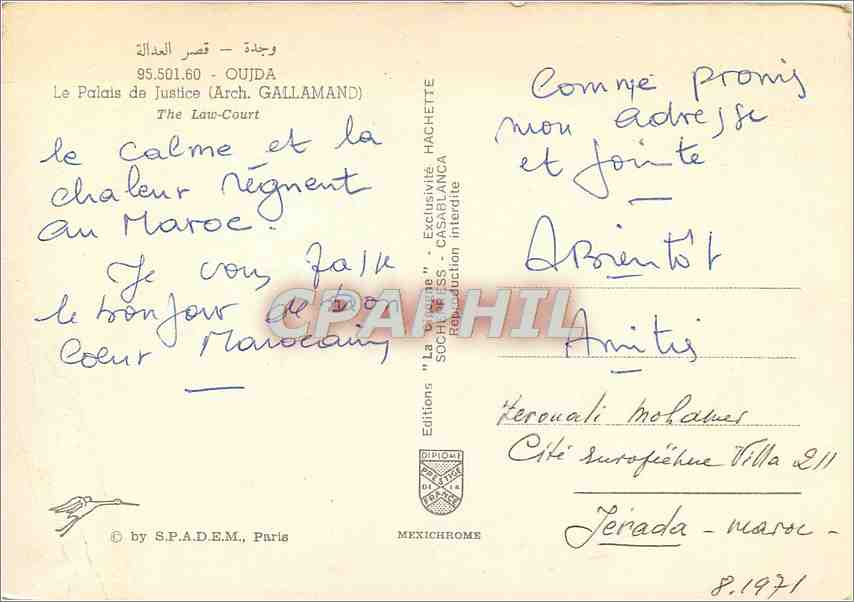 وجدة – قصر العدالة
95.501.60 - OUJDA
Le Palais de Justice (Arch. GALLAMAND)
The Law-Court
le calme et la
chaleur règnent
au Maroc.
Je vous passe
le bonjour de bon
Coeur Marocain
© by S.P.A.D.E.M., Paris
Editions "La Cigogne" - Exclusivité HACHETTE
SOCHEPRESS - CASABLANCA
Reproduction interdite
CPAPHIL
DIPLOME
PRESTIGE
DE LA
FRANCE
MEXICHROME
Comme promis
mon adresse
et jointe
A Bientôt
Amitiés
Zerouali Mohamed
Cité européenne Villa 211
Jerada - maroc -
8.1971